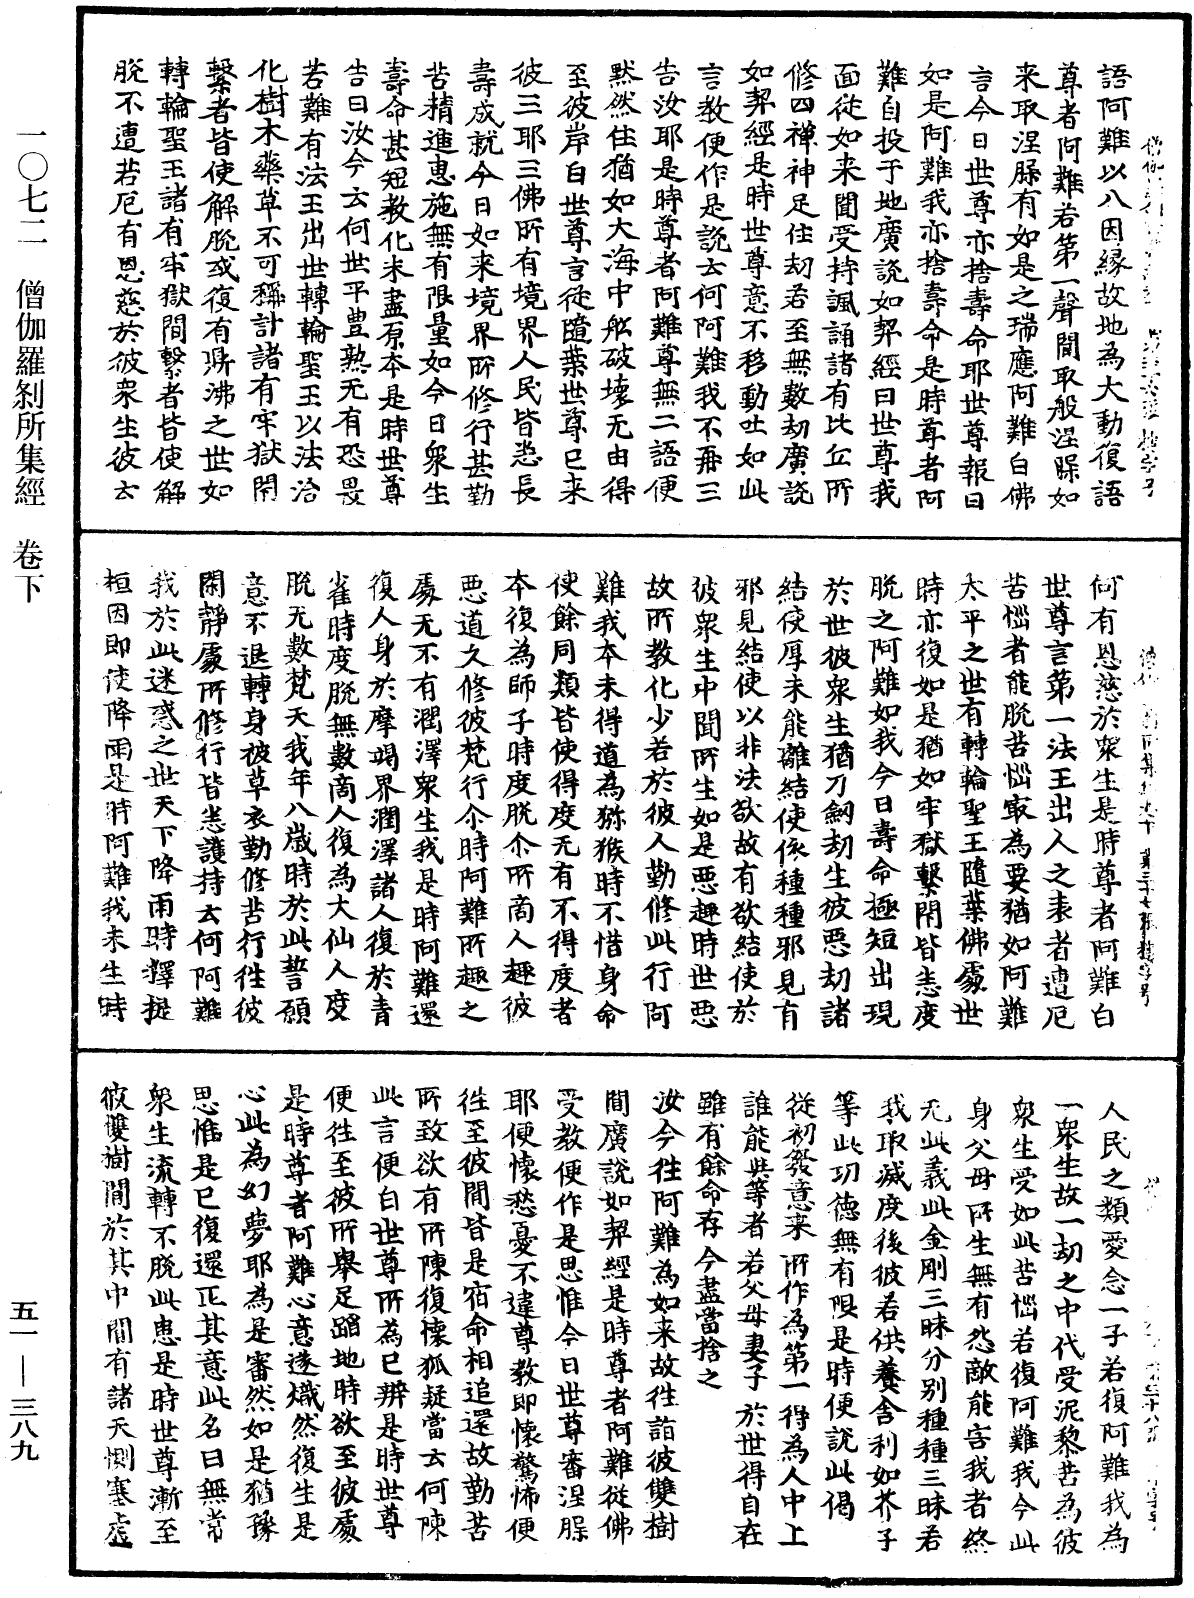 一〇七二　僧伽羅刹所集經　卷下
五一—三八九
語阿難以八因縁故地為大動復語
尊者阿難若第一聲聞取般涅䏶如
来取涅䏶有如是之瑞應阿難白佛
言今日世尊亦捨壽命耶世尊報曰
如是阿難我亦捨壽命是時尊者阿
難自投于地廣説如契經曰世尊我
面從如来聞受持諷誦諸有比丘所
修四禪神足住劫若至無數劫廣説
如契經是時世尊意不移動吐如此
言教便作是説云何阿難我不再三
告汝耶是時尊者阿難尊無二語便
黙然住猶如大海中舩破壊无由得
至彼岸白世尊言従随葉世尊已来
彼三耶三佛所有境界人民皆悉長
壽成就今日如来境界所修行甚勤
苦精進惠施無有限量如今日衆生
壽命甚短教化未盡原本是時世尊
告曰汝今云何世平豊熟无有恐畏
若難有法王出世轉輪聖王以法治
化樹木藥草不可稱計諸有牢獄閇
繫者皆使解脱或復有鼎沸之世如
轉輪聖王諸有牢獄間繫者皆使解
脱不遭苦厄有恩慈於彼衆生彼云
何有恩慈於衆生是時尊者阿難白
世尊言第一法王出人之表者遭厄
苦惱者能脱苦惱㝡為要猶如阿難
太平之世有轉輪聖王随葉佛處世
時亦復如是猶如牢獄繫閇皆悉度
脱之阿難如我今日壽命極短出現
於世彼衆生猶刀劒劫生彼惡劫諸
結使厚未能離結使依種種邪見有
邪見結使以非法欲故有欲結使於
彼衆生中聞所生如是惡趣時世惡
故所教化少若於彼人勤修此行阿
難我本未得道為猕猴時不惜身命
使餘同類皆使得度无有不得度者
本復為師子時度脱尒所商人趣彼
惡道久修彼梵行尒時阿難所趣之
處无不有潤澤衆生我是時阿難還
復人身於摩竭界潤澤諸人復於青
雀時度脱無數商人復為大仙人度
脱无數梵天我年八歲時於此誓願
意不退轉身被草衣勤修苦行徃彼
閑靜處所修行皆悉護持云何阿難
我於此迷惑之世天下降雨時釋提
桓因即使降雨是時阿難我未生時
人民之類愛念一子若復阿難我為
一衆生故一劫之中代受泥黎苦為彼
衆生受如此苦惱若復阿難我今此
身父母所生無有怨敵能害我者終
无此義此金剛三昧分别種種三昧若
我取滅度後彼若供養舍利如芥子
等此功德無有限是時便説此偈
從初發意来　所作為第一得為人中上
誰能與等者　若父母妻子　於世得自在
雖有餘命存　今盡當捨之
汝今徃阿難為如来故徃詣彼雙樹
間廣説如契經是時尊者阿難從佛
受教便作是思惟今日世尊審涅䏶
耶便懷愁憂不違尊教即懷驚怖便
徃至彼間皆是宿命相追還故勤苦
所致欲有所陳復懷狐疑當云何陳
此言便白世尊所為已辨是時世尊
便徃至彼所舉足蹈地時欲至彼處
是時尊者阿難心意遂熾然復生是
心此為幻夢耶為是審然如是猶豫
思惟是已復還正其意此名曰無常
衆生流轉不脱此患是時世尊漸至
彼雙樹間於其中間有諸天惻塞虚